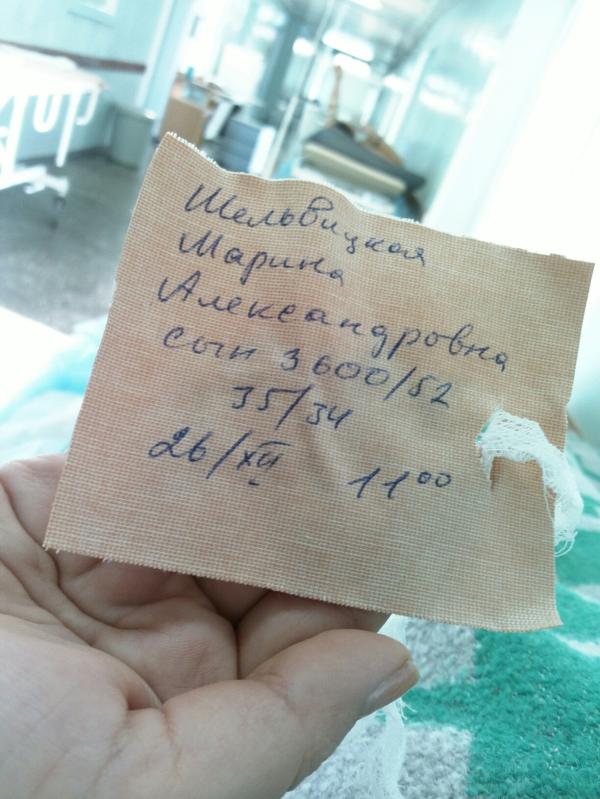 Шельвицкая
Марина
Александровна
сын 3600/52
35/34
26/XII 11⁰⁰